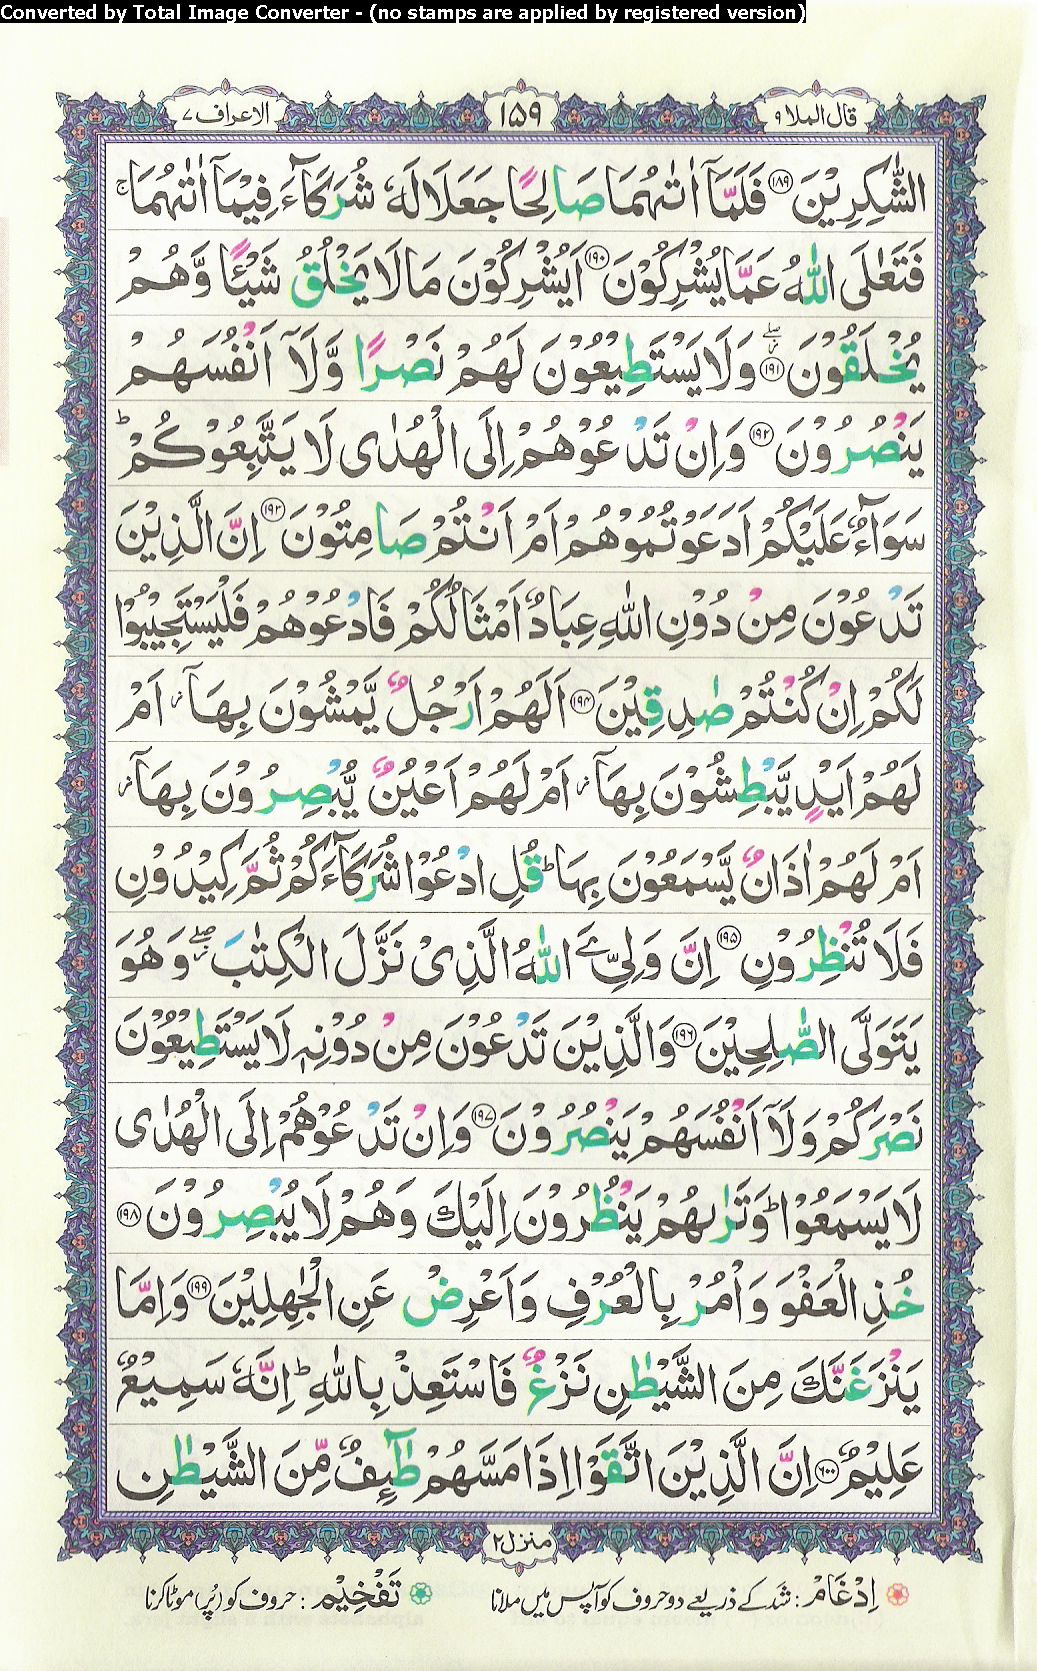 Converted by Total Image Converter - (no stamps are applied by registered version)
قال الملا ٩
١٥٩
الاعراف ٧
الشّٰكِرِيْنَ ﴿۱۸۹﴾ فَلَمَّاۤ اٰتٰىهُمَا صَالِحًا جَعَلَا لَهٗ شُرَكَآءَ فِيْمَاۤ اٰتٰىهُمَا ۚ
فَتَعٰلَى اللّٰهُ عَمَّا يُشْرِكُوْنَ ﴿۱۹۰﴾ اَيُشْرِكُوْنَ مَا لَا يَخْلُقُ شَيْـًٔا وَّهُمْ
يُخْلَقُوْنَ ﴿۱۹۱﴾ وَلَا يَسْتَطِيْعُوْنَ لَهُمْ نَصْرًا وَّلَاۤ اَنْفُسَهُمْ
يَنْصُرُوْنَ ﴿۱۹۲﴾ وَاِنْ تَدْعُوْهُمْ اِلَى الْهُدٰى لَا يَتَّبِعُوْكُمْ ؕ
سَوَآءٌ عَلَيْكُمْ اَدَعَوْتُمُوْهُمْ اَمْ اَنْتُمْ صَامِتُوْنَ ﴿۱۹۳﴾ اِنَّ الَّذِيْنَ
تَدْعُوْنَ مِنْ دُوْنِ اللّٰهِ عِبَادٌ اَمْثَالُكُمْ فَادْعُوْهُمْ فَلْيَسْتَجِيْبُوْا
لَكُمْ اِنْ كُنْتُمْ صٰدِقِيْنَ ﴿۱۹۴﴾ اَلَهُمْ اَرْجُلٌ يَّمْشُوْنَ بِهَاۤ ؗ اَمْ
لَهُمْ اَيْدٍ يَّبْطِشُوْنَ بِهَاۤ ؗ اَمْ لَهُمْ اَعْيُنٌ يُّبْصِرُوْنَ بِهَاۤ ؗ
اَمْ لَهُمْ اٰذَانٌ يَّسْمَعُوْنَ بِهَا ؕ قُلِ ادْعُوْا شُرَكَآءَكُمْ ثُمَّ كِيْدُوْنِ
فَلَا تُنْظِرُوْنِ ﴿۱۹۵﴾ اِنَّ وَلِيِّۦَ اللّٰهُ الَّذِىْ نَزَّلَ الْكِتٰبَ ۖؗ وَهُوَ
يَتَوَلَّى الصّٰلِحِيْنَ ﴿۱۹۶﴾ وَالَّذِيْنَ تَدْعُوْنَ مِنْ دُوْنِهٖ لَا يَسْتَطِيْعُوْنَ
نَصْرَكُمْ وَلَاۤ اَنْفُسَهُمْ يَنْصُرُوْنَ ﴿۱۹۷﴾ وَاِنْ تَدْعُوْهُمْ اِلَى الْهُدٰى
لَا يَسْمَعُوْا ؕ وَتَرٰىهُمْ يَنْظُرُوْنَ اِلَيْكَ وَهُمْ لَا يُبْصِرُوْنَ ﴿۱۹۸﴾
خُذِ الْعَفْوَ وَاْمُرْ بِالْعُرْفِ وَاَعْرِضْ عَنِ الْجٰهِلِيْنَ ﴿۱۹۹﴾ وَاِمَّا
يَنْزَغَنَّكَ مِنَ الشَّيْطٰنِ نَزْغٌ فَاسْتَعِذْ بِاللّٰهِ ؕ اِنَّهٗ سَمِيْعٌ
عَلِيْمٌ ﴿۲۰۰﴾ اِنَّ الَّذِيْنَ اتَّقَوْا اِذَا مَسَّهُمْ طٰٓئِفٌ مِّنَ الشَّيْطٰنِ
منزل ٢
اِدْغَامْ : شد کے ذریعے دو حروف کو آپس میں ملانا تَفْخِيْمْ : حروف کو (پُر) موٹا کرنا